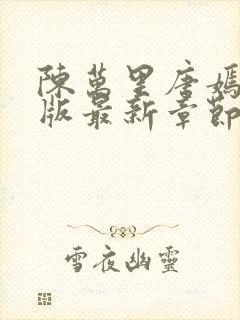 陳萬里唐嫣
版最新章節
雪夜幽靈